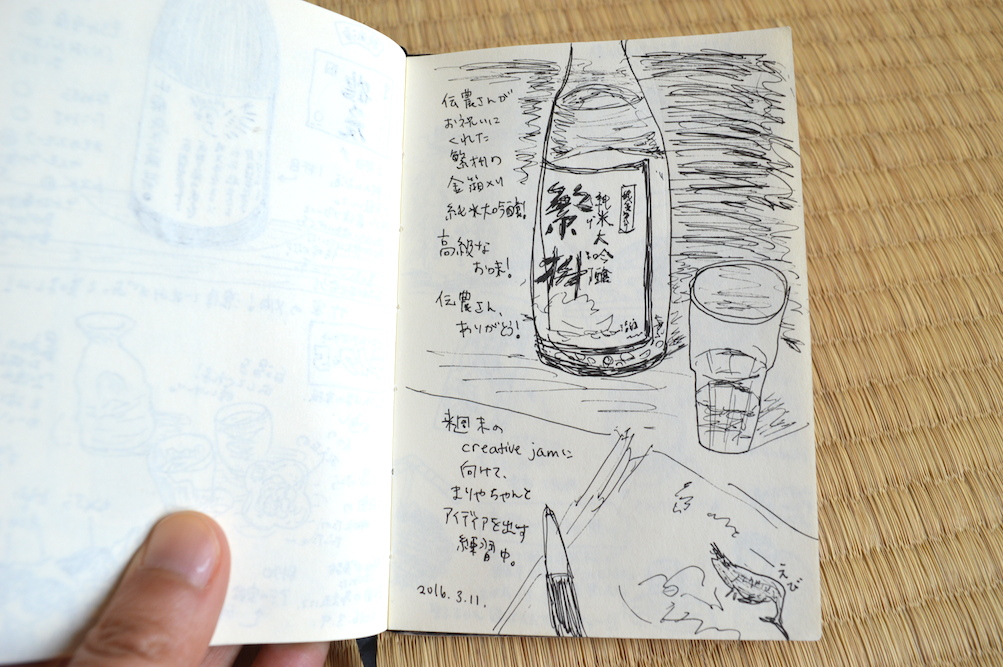 伝農さんが
お祝いに
くれた
繁桝の
金箔入り
純米大吟醸!
高級な
お味!
伝農さん、
ありがとう!
繁桝
純米大吟醸
来週末の
creative jamに
向けて、
まりやちゃんと
アイディアを出す
練習中。
2016.3.11.
えび